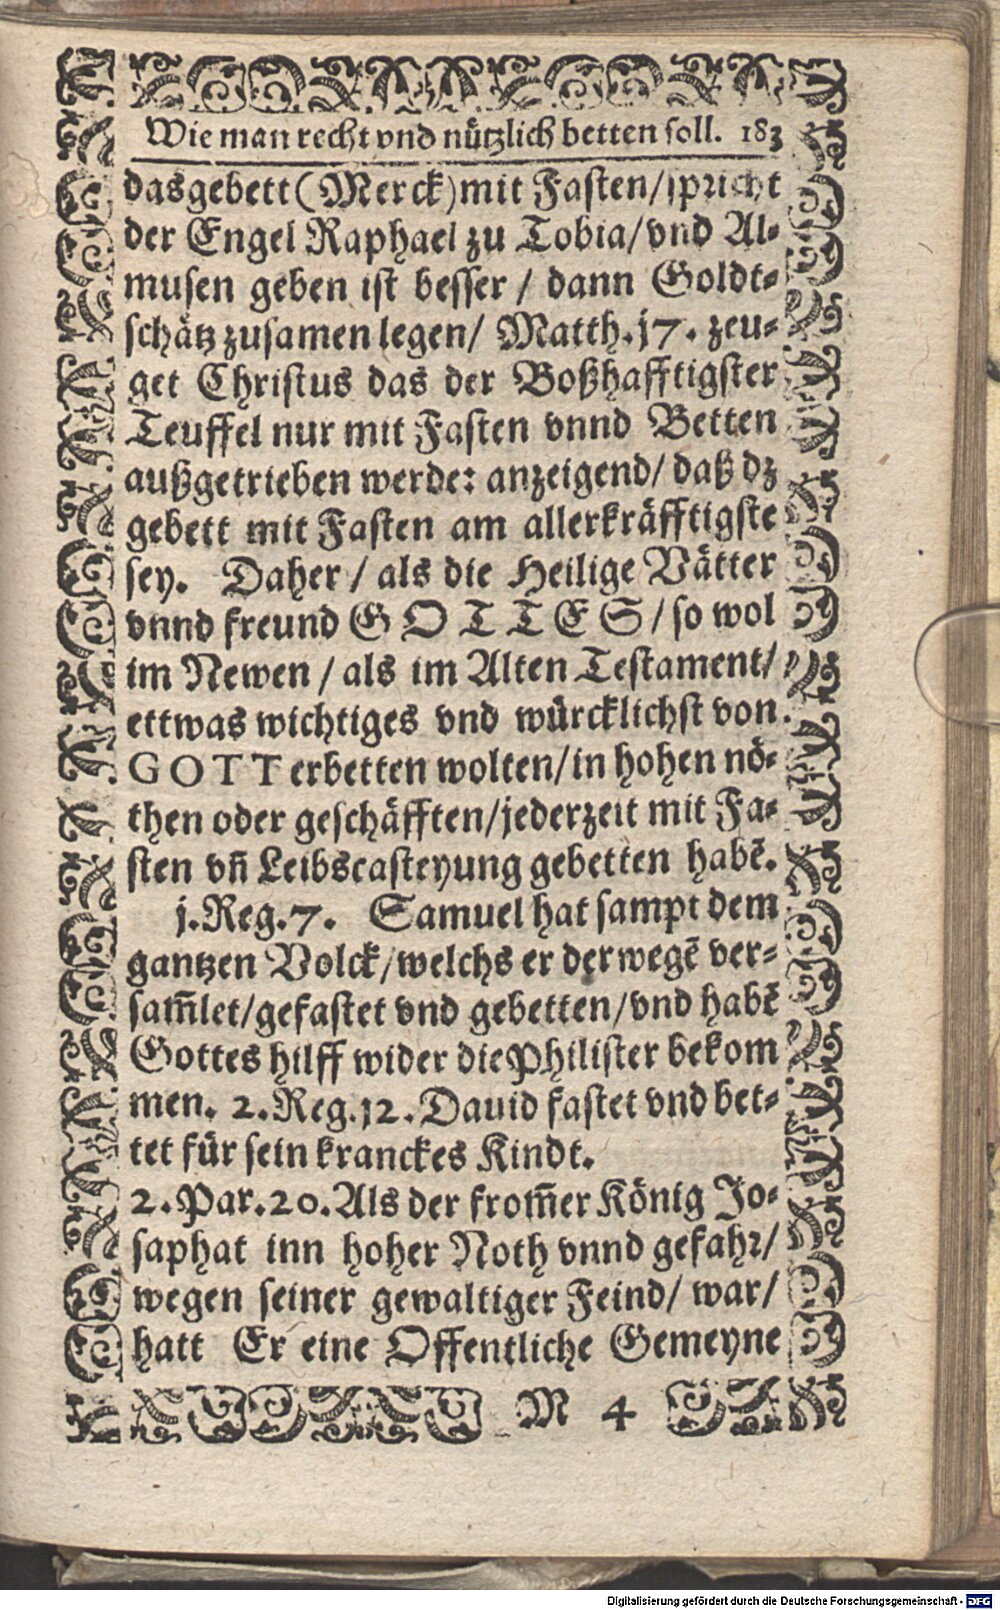 Wie man recht vnd nützlich betten soll. 183
das gebett (Merck) mit Fasten/ spricht
der Engel Raphael zu Tobia/ vnd Al-
musen geben ist besser / dann Goldt-
schätz zusamen legen/ Matth. j7. zeu-
get Christus das der Boßhafftigster
Teuffel nur mit Fasten vnnd Betten
außgetrieben werde: anzeigend/ daß dz
gebett mit Fasten am allerkräfftigste
sey. Daher / als die Heilige Vätter
vnnd freund GOTTES / so wol
im Newen / als im Alten Testament/
ettwas wichtiges vnd würcklichst von
GOTT erbetten wolten/ in hohen nö-
then oder geschäfften/ jederzeit mit Fa-
sten vñ Leibscasteyung gebetten habē.
j. Reg. 7. Samuel hat sampt dem
gantzen Volck/ welchs er derwegē ver-
sam̃let/ gefastet vnd gebetten/ vnd habē
Gottes hilff wider die Philister bekom
men. 2. Reg. j2. Dauid fastet vnd bet-
tet für sein kranckes Kindt.
2. Par. 20. Als der from̃er König Jo-
saphat inn hoher Noth vnnd gefahr/
wegen seiner gewaltiger Feind/ war/
hatt Er eine Offentliche Gemeyne
M 4
Digitalisierung gefördert durch die Deutsche Forschungsgemeinschaft - DFG